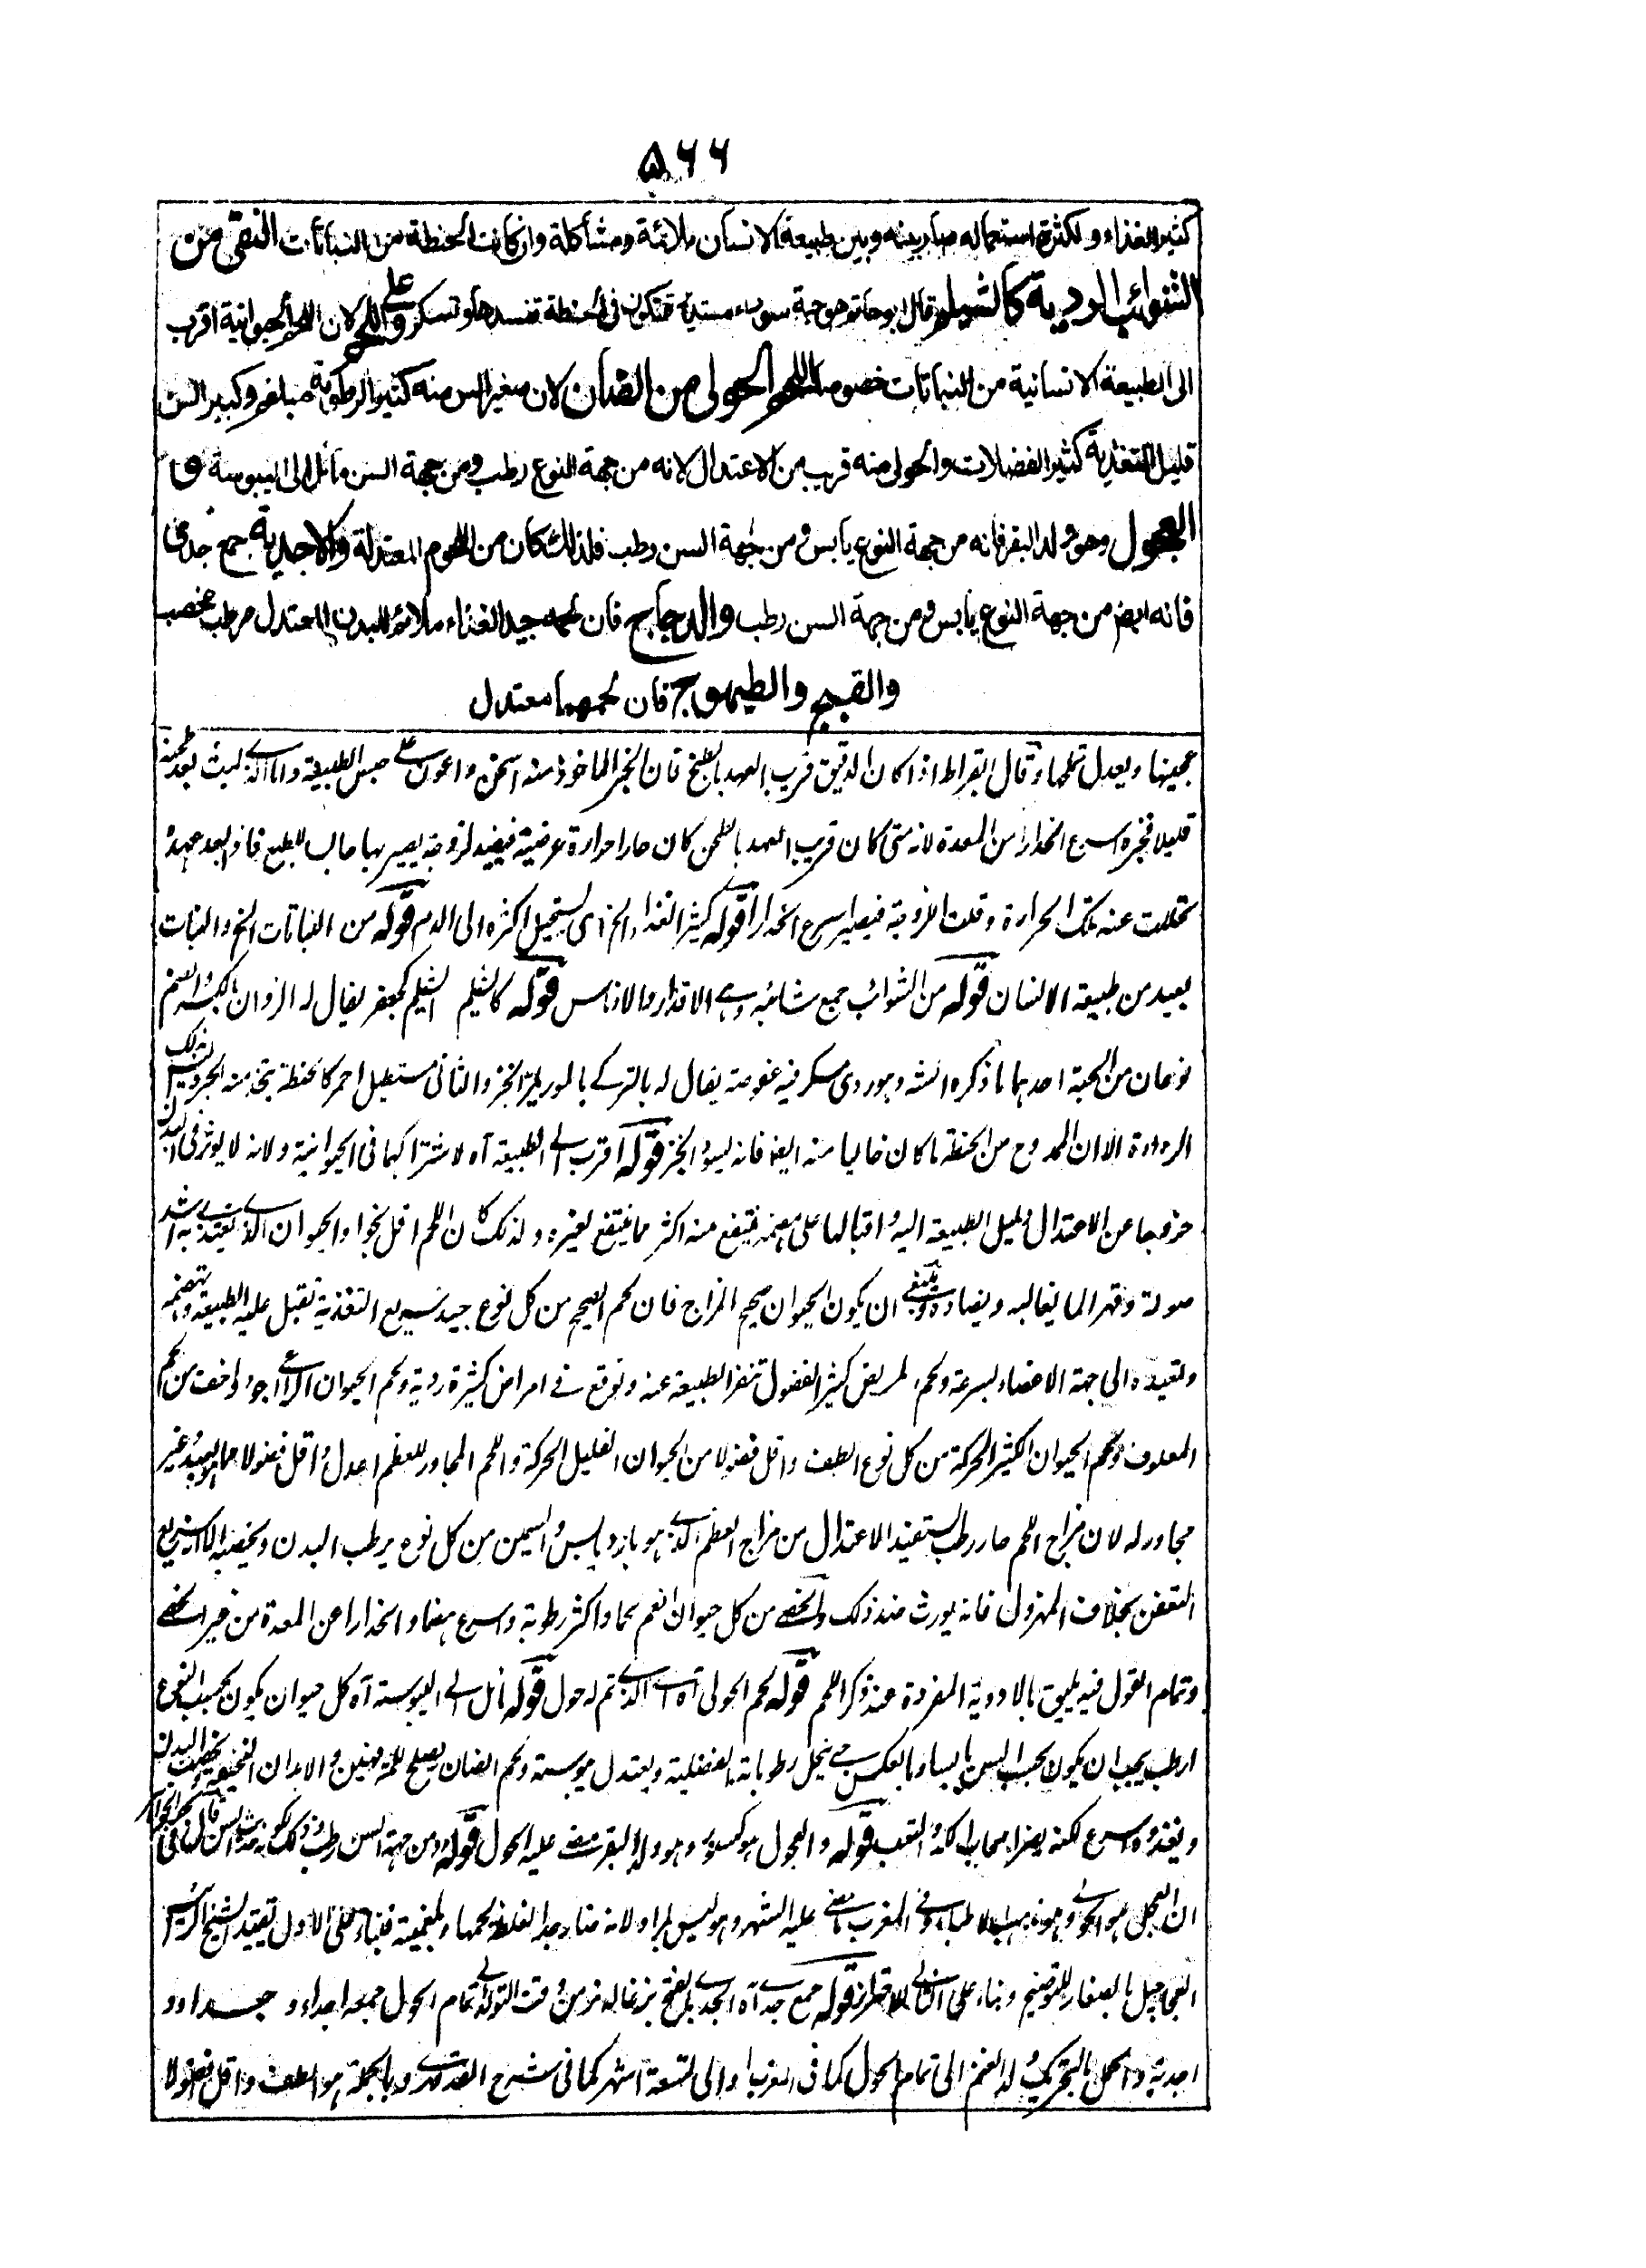 ۵۶۶
كثير الغذاء ولكثرة استعماله صار بينه وبين طبيعة الانسان ملائمة ومشاكلة وان كانت الحنطة من النباتات النقى من
الشوائب الردية كالشيلم قال ابو حاتم هو حبة سوداء مستديرة تتكون فى الحنطة تفسدها وتسكر على واللحم لان اللحم الحيوانية اقرب
الى الطبيعة الانسانية من النباتات خصوصا اللحم الحولى من الضأن لان صغير السن منه كثير الرطوبة مبلغم وكبير السن
قليل التغذية كثير الفضلات والحولى منه قريب من الاعتدال لانه من جهة النوع رطب ومن جهة السن مائل الى اليبوسة و
العجول وهو ولد البقر فانه من جهة النوع يابس ومن جهة السن رطب فلذلك كان من اللحوم المعتدلة والاجدية جمع جدى
فانه ايضا من جهة النوع يابس ومن جهة السن رطب والدجاج فان لحمه جيد الغذاء ملائم للبدن المعتدل مرطب مخصب
والقبج والطيهوج فان لحمهما معتدل
عجينها ويعدل ملحها وقال ابقراط اذا كان الدقيق قريب العهد بالطبخ فان الخبز الماخوذ منه اسخن واعون على حبس الطبيعة واما الذى لبث بعد طحنه
قليلا فخبزه اسرع انحدارا من المعدة لانه متى كان قريب العهد بالطحن كان حارا حرارة عرضية فيفيد لزوجة يصير بها حابسا للطبع فاذا بعد عهده
تحللت عنه تلك الحرارة وقلت اللزوجة فيصير اسرع انحدارا قوله كثير الغذاء الخ اى يستحيل اكثره الى الدم قوله من النباتات الخ والنبات
بعيد من طبيعة الانسان قوله من الشوائب جمع شائبة وهى الاقذار والادناس قوله كالشيلم الشيلم كجعفر يقال له الزوان بالكسر والضم
نوعان من الحبة احدهما ما ذكره الشه وهو ردى مسكر فيه عفوصة يقال له بالتركى بالمور يمرر الخبز والثانى مستطيل احمر كالحنطة يتخذ منه الخبز وليس بتلك
الرداءة الا ان الممدوح من الحنطة ما كان خاليا منه ايضا فانه يسود الخبز قوله اقرب الى الطبيعة آه لاشتراكهما فى الحيوانية ولانه لا يوثر فى البدن
خروجا عن الاعتدال ولميل الطبيعة اليه واقبالها على هضمه فينتفع منه اكثر مما ينتفع بغيره ولذلك كان اللحم اقل نجوا والحيوان الذى يغتذى به اشد
صولة وقهرا لما يغالبه ويضاده وينبغى ان يكون الحيوان صحيح المزاج فان لحم الصحيح من كل نوع جيد سريع التغذية تقبل عليه الطبيعة وتهضمه
وتغيده الى جهة الاعضاء بسرعة ولحم المريض كثير الفضول تنفر الطبيعة عنه ويوقع فى امراض كثيرة ردية ولحم الحيوان الراعى اجود واخف من لحم
المعلوف ولحم الحيوان الكثير الحركة من كل نوع الطف واقل فضولا من الحيوان القليل الحركة واللحم المجاور للعظم اعدل واقل فضولا مما هو بعيد غير
مجاور له لان مزاج اللحم حار رطب يستفيد الاعتدال من مزاج العظم الذى هو بارد يابس والسمين من كل نوع يرطب البدن ويخصبه الا انه سريع
التعفن بخلاف المهزول فانه يورث ضد ذلك والخصى من كل حيوان انعم لحما واكثر رطوبة واسرع هضما وانحدارا عن المعدة من غير الخصى
وتمام القول فيه يليق بالادوية المفردة عند ذكر اللحم قوله لحم الحولى آه اى الذى تم له حول قوله مائل الى اليبوسة آه كل حيوان يكون بحسب النوع
ارطب يجب ان يكون بحسب السن يابسا وبالعكس حتى يحلل رطوباته الفضلية ويعتدل يبوسته ولحم الضان يصلح للمرتعشين والابدان النحيفة ويخصب البدن
ويغذوه اسرع لكنه يضر اصحاب الكد والتعب قوله والعجول هو كسنور وهو ولد البقر مضى عليه الحول قوله ومن جهة السن رطب وذلك لكونه حديث السن قال فى بحر الجواهر
ان العجل هو الحولى وهو مذهب الاطباء وفى المغرب ما مضى عليه الشهر وهو ليس بمراد لانه ضار جدا لغلظ لحمها ولبلغمية فبناء على الاول تقييد الشيخ الرئيس
العجاجيل بالصغار للتوضيح وبناء على الثانى للاحتراز قوله جمع جدى آه الجدى بالفتح بزغاله نر من وقت التولد الى تمام الحول جمعه اجداء و جداء و
اجدية والحمل بالتحريك ولد الغنم الى تمام الحول كما فى المغرب او الى تسعة اشهر كما فى شرح القدورى وبالجملة هو الطف واقل فضولا